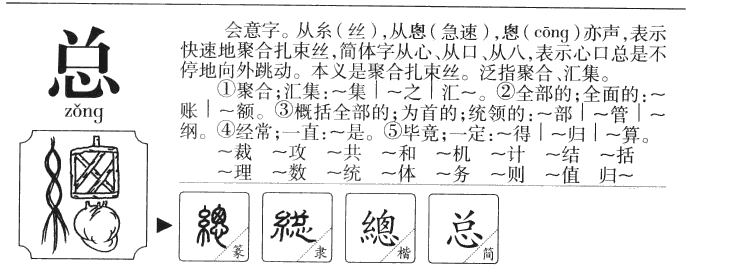 总
zǒng
会意字。从糸(丝),从悤(急速),悤(cōng)亦声,表示
快速地聚合扎束丝,简体字从心、从口、从八,表示心口总是不
停地向外跳动。本义是聚合扎束丝。泛指聚合、汇集。
①聚合;汇集:~集|~之|汇~。②全部的;全面的:~
账|~额。③概括全部的;为首的;统领的:~部|~管|~
纲。④经常;一直:~是。⑤毕竟;一定:~得|~归|~算。
~裁 ~攻 ~共 ~和 ~机 ~计 ~结 ~括
~理 ~数 ~统 ~体 ~务 ~则 ~值 归~
總 篆 總 隶 總 楷 总 简